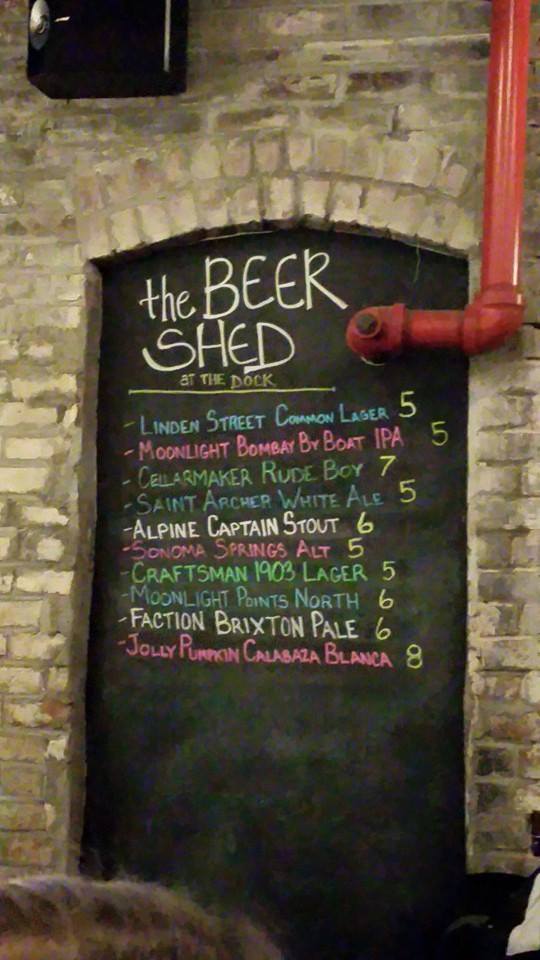 the BEER
SHED
aT THE DOCK
- LINDEN STREET COMMON LAGER 5
- MOONLIGHT BOMBAY BY BOAT IPA 5
- CELLARMAKER RUDE BOY 7
- SAINT ARCHER WHITE ALE 5
- ALPINE CAPTAIN STOUT 6
- SONOMA SPRINGS ALT 5
- CRAFTSMAN 1903 LAGER 5
- MOONLIGHT POINTS NORTH 6
- FACTION BRIXTON PALE 6
- JOLLY PUMPKIN CALABAZA BLANCA 8